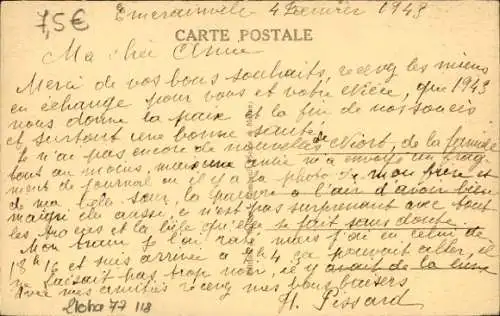 7,5€
Emerainville 4 Février 1943
CARTE POSTALE
Ma chère Anna
Merci de vos bons souhaits, recevez les miens
en échange pour vous et votre nièce, que 1943
nous donne la paix et la fin de nos soucis
et surtout une bonne santé.
Je n'ai pas encore de nouvelles de Niort, de la famille
tout au moins, mais une amie m'a envoyé un frag
ment de journal où il y a la photo de mon frère et
de ma belle sœur, la pauvre a l'air d'avoir bien
maigri elle aussi, ce n'est pas surprenant avec tout
les tracas et la vie qu'elle se fait sans doute.
Mon train je l'ai raté mais j'ai eu celui de
18h16 et suis arrivée à ça pouvait aller, il
ne faisait pas trop noir, il y avait de la lune
Avec mes amitiés recevez mes bons baisers
H. Pissard
77 118